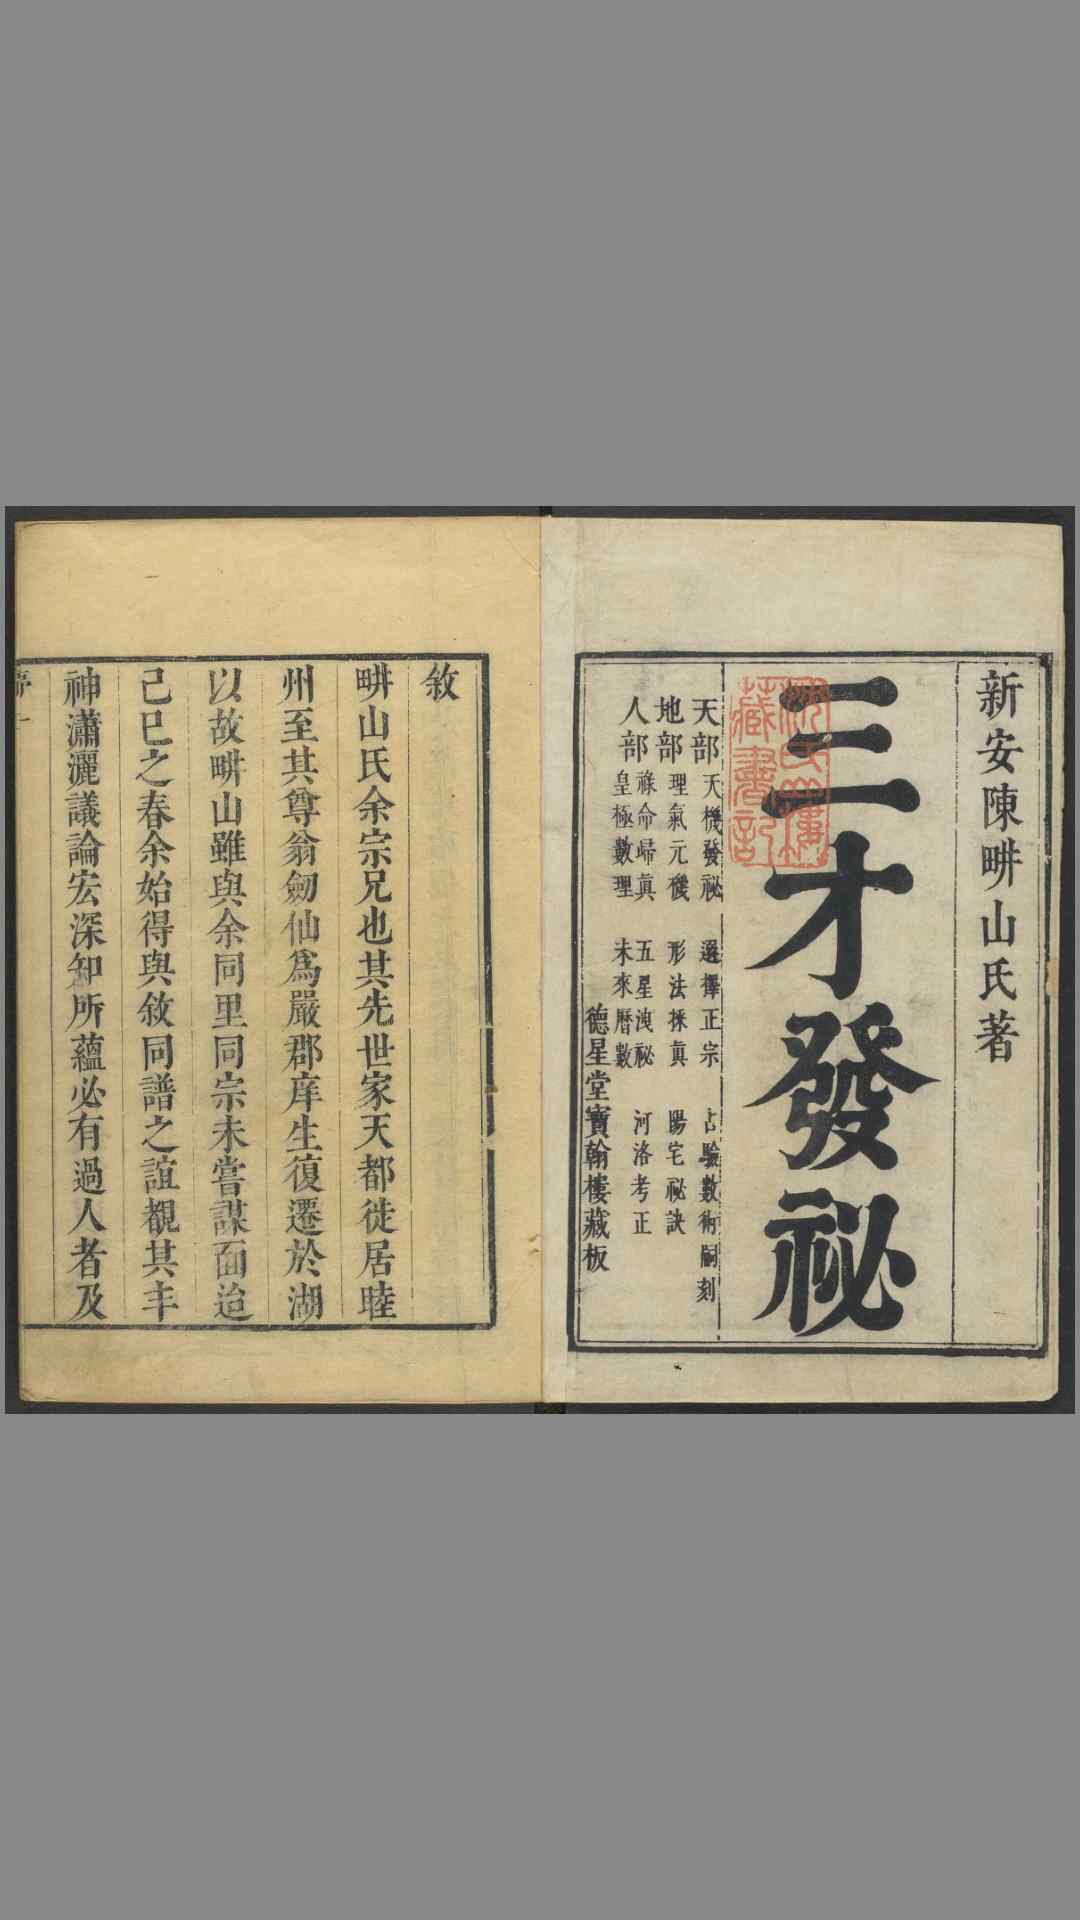 新安陳畊山氏著
三才發祕
天部 天機發祕 選擇正宗 占驗數術嗣刻
地部 理氣元機 形法採真 陽宅祕訣
人部 祿命歸真 五星洩祕 河洛考正
皇極數理 未來曆數
德星堂寶翰樓藏板
藏書記
敘
畊山氏余宗兄也其先世家天都徙居睦
州至其尊翁劒仙為嚴郡庠生復遷於湖
以故畊山雖與余同里同宗未嘗謀面迨
己巳之春余始得與敘同譜之誼覩其丰
神瀟灑議論宏深知所蘊必有過人者及